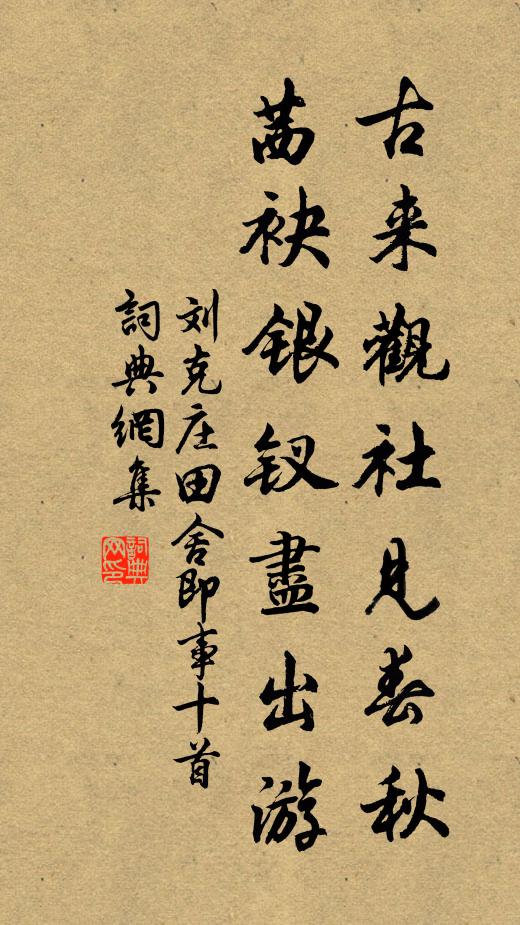 古来觀社見春秋
茜袂银钗盡出游
刘克庄田舍即事十首
詞典網集
詞典
网印